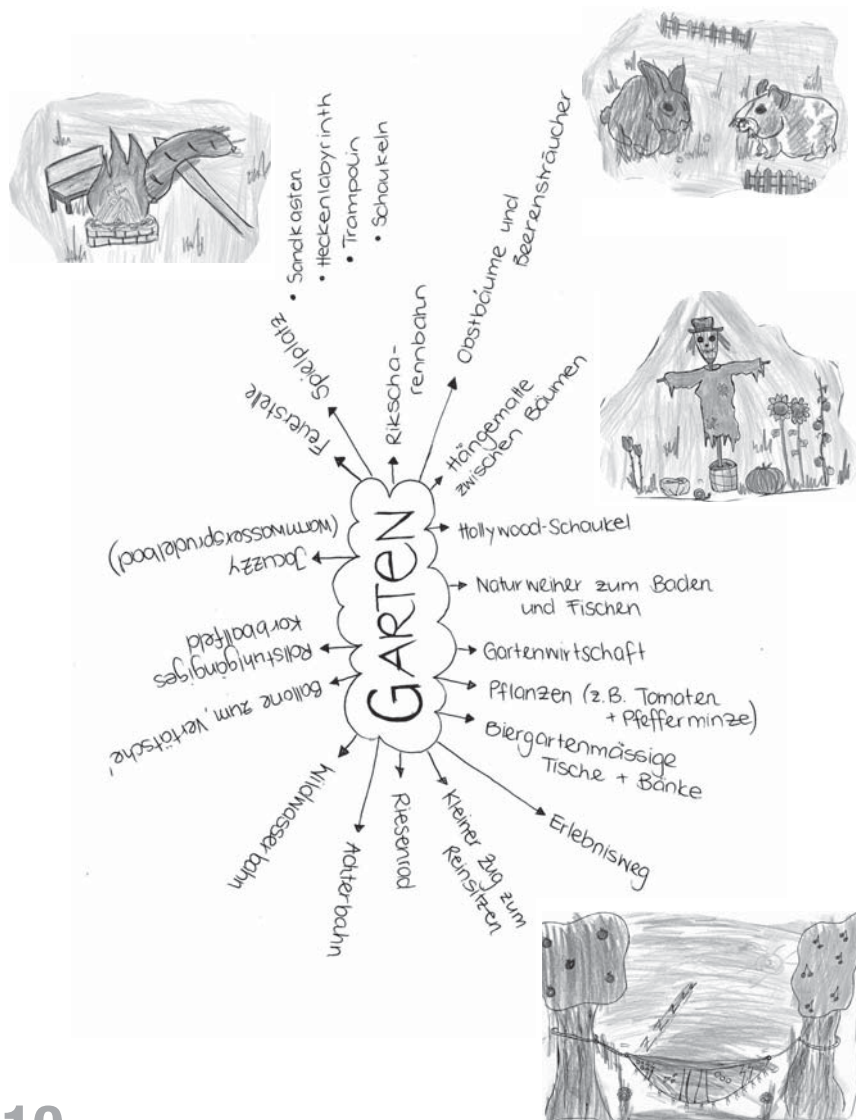 GARTEN
Feuerstelle
Spielplatz
• Sandkasten
• Heckenlabyrinth
• Trampolin
• Schaukeln
Rikscha-
rennbahn
Obstbäume und
Beerensträucher
Hängematte
zwischen Bäumen
Hollywood-Schaukel
Naturweiher zum Baden
und Fischen
Gartenwirtschaft
Pflanzen (z.B. Tomaten
+ Pfefferminze)
Biergartenmässige
Tische + Bänke
Erlebnisweg
Kleiner Zug zum
Reinsitzen
Riesenrad
Achterbahn
Wildwasserbahn
Ballone zum, Vertätsche'
Rollstuhlgängiges
Korbballfeld
Jacuzzy
(Warmwassersprudelbad)
10